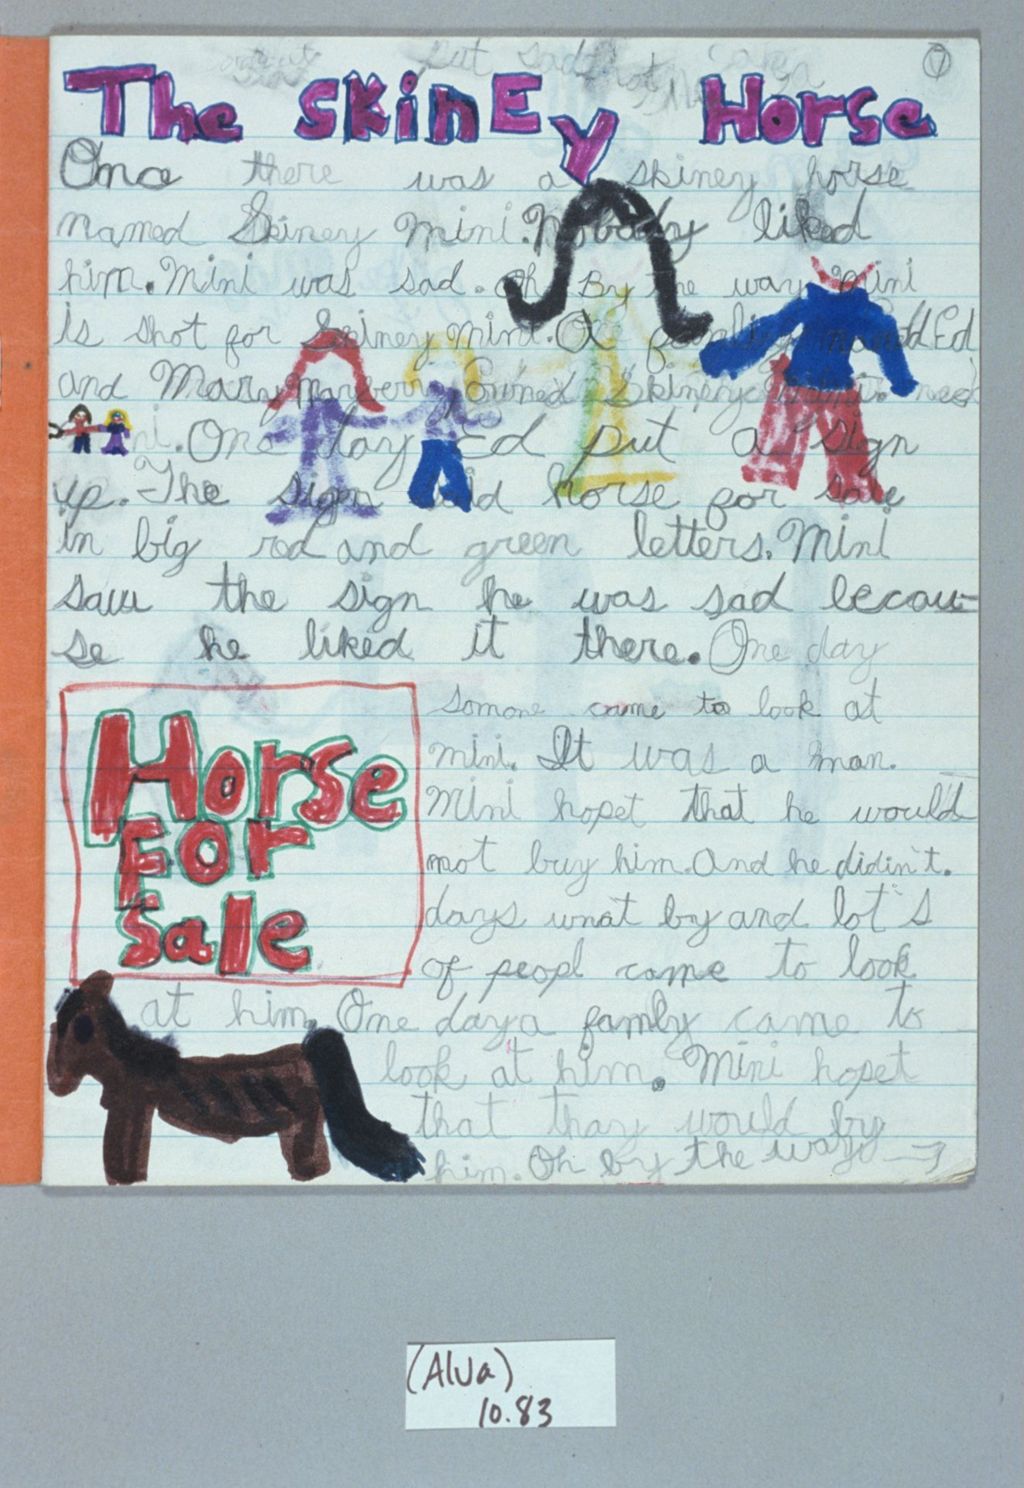 The Skiney Horse
Once there was a skiney horse
named Skiney Mini. Nobody liked
him. Mini was sad. Oh By the way Mini
is shot for Skiney Mini. A family named Ed
and Mary owned Skiney Mini.
ni. One day Ed put a sign
up. The sign said horse for sale
in big red and green letters. Mini
saw the sign he was sad becau-
se he liked it there. One day
somone came to look at
mini. It was a man.
Mini hopet that he would
not buy him. And he didin't.
days what by and lot's
of peopl came to look
at him. One day a famly came to
look at him. Mini hopet
that thay would by
him. Oh by the way →
Horse
For
Sale
(Alva)
10.83